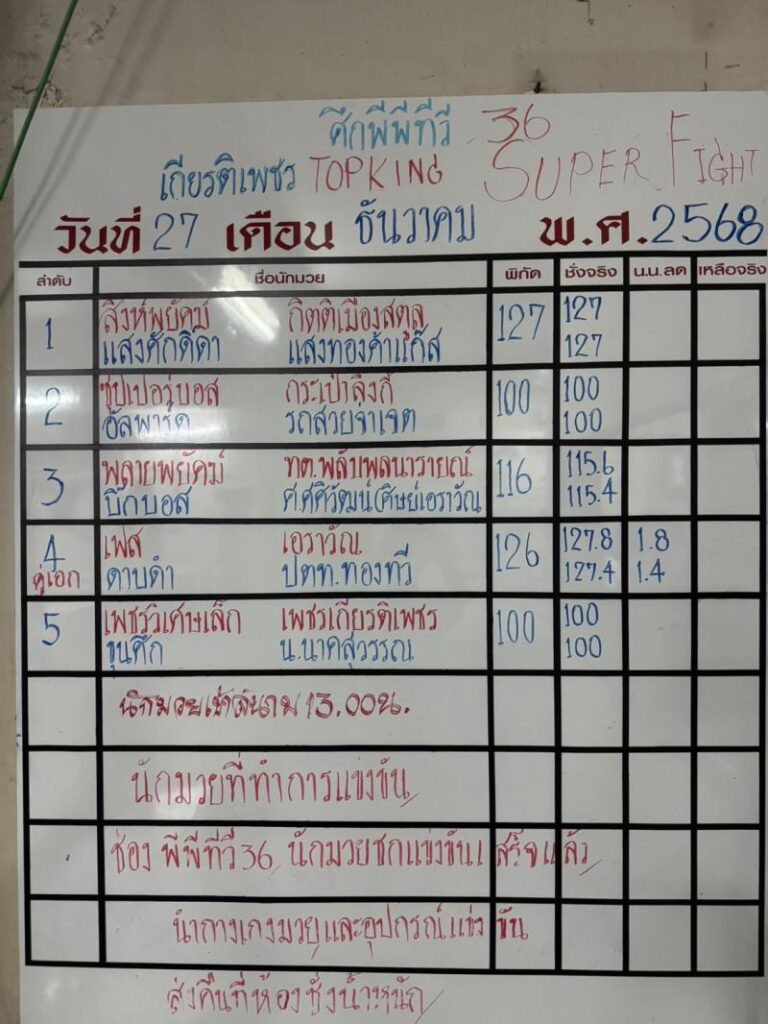 ศึกพีพีทีวี 36
เกียรติเพชร TOPKING SUPER FIGHT
วันที่ 27 เดือน ธันวาคม พ.ศ. 2568
ลำดับ ชื่อนักมวย พิกัด ชั่งจริง น.น.ลด เหลือจริง
1 สิงห์พยัคฆ์ กิตติเมืองสตูล 127 127
แสงศักดิ์ดา แสงทองค้าแก๊ส 127
2 ซุปเปอร์บอส กระเป๋าลิงกี 100 100
อัลพาร์ด รถสวยจ่าเจต 100
3 พลายพยัคฆ์ ทต.พลับพลนารายณ์ 116 115.6
บิ๊กบอส ศ.ศศิวัฒน์(ศิษย์เอราวัณ 115.4
4 เฟส เอราวัณ 126 127.8 1.8
คู่เอก ดาบดำ ปตท.ทองทวี 127.4 1.4
5 เพชรวิเศษเล็ก เพชรเกียรติเพชร 100 100
ขุนศึก น.นาคสุวรรณ 100
นักมวยเข้าสนาม 13.00น.
นักมวยที่ทำการแข่งขัน
ช่อง พีพีทีวี 36 นักมวยชกแข่งขันเสร็จแล้ว
นำกางเกงมวยและอุปกรณ์แข่งขัน
ส่งคืนที่ห้องชั่งน้ำหนัก